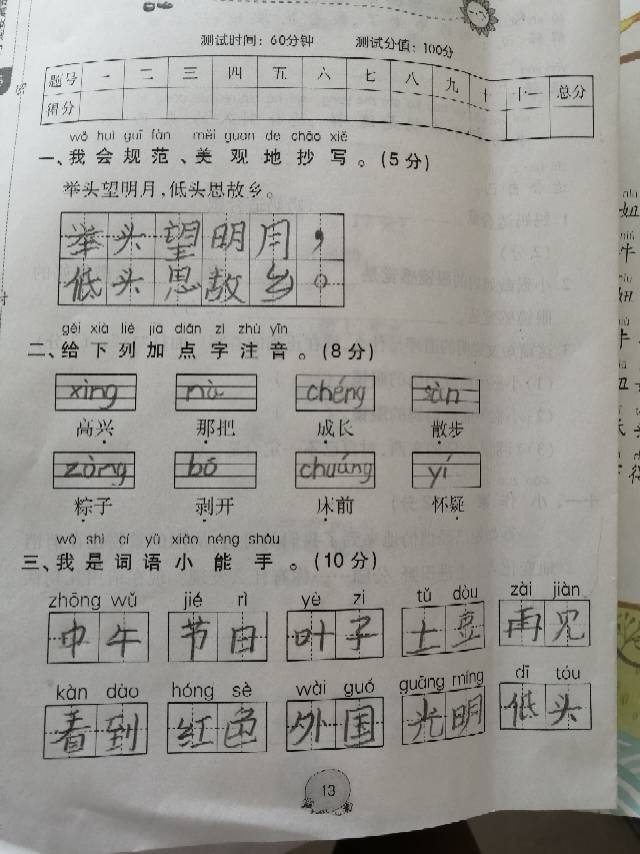 测试时间：60分钟 测试分值：100分
题号 一 二 三 四 五 六 七 八 九 十 十一 总分
得分
wǒ huì guī fàn měi guān de chāo xiě
一、我会规范、美观地抄写。(5分)
举头望明月,低头思故乡。
举头望明月，
低头思故乡。
gěi xià liè jiā diǎn zì zhù yīn
二、给下列加点字注音。(8分)
xìng nà chéng sàn
高兴 那把 成长 散步
zòng bō chuáng yí
粽子 剥开 床前 怀疑
wǒ shì cí yǔ xiǎo néng shǒu
三、我是词语小能手。(10分)
zhōng wǔ jié rì yè zi tǔ dòu zài jiàn
中午 节日 叶子 土豆 再见
kàn dào hóng sè wài guó guāng míng dī tóu
看到 红色 外国 光明 低头
13